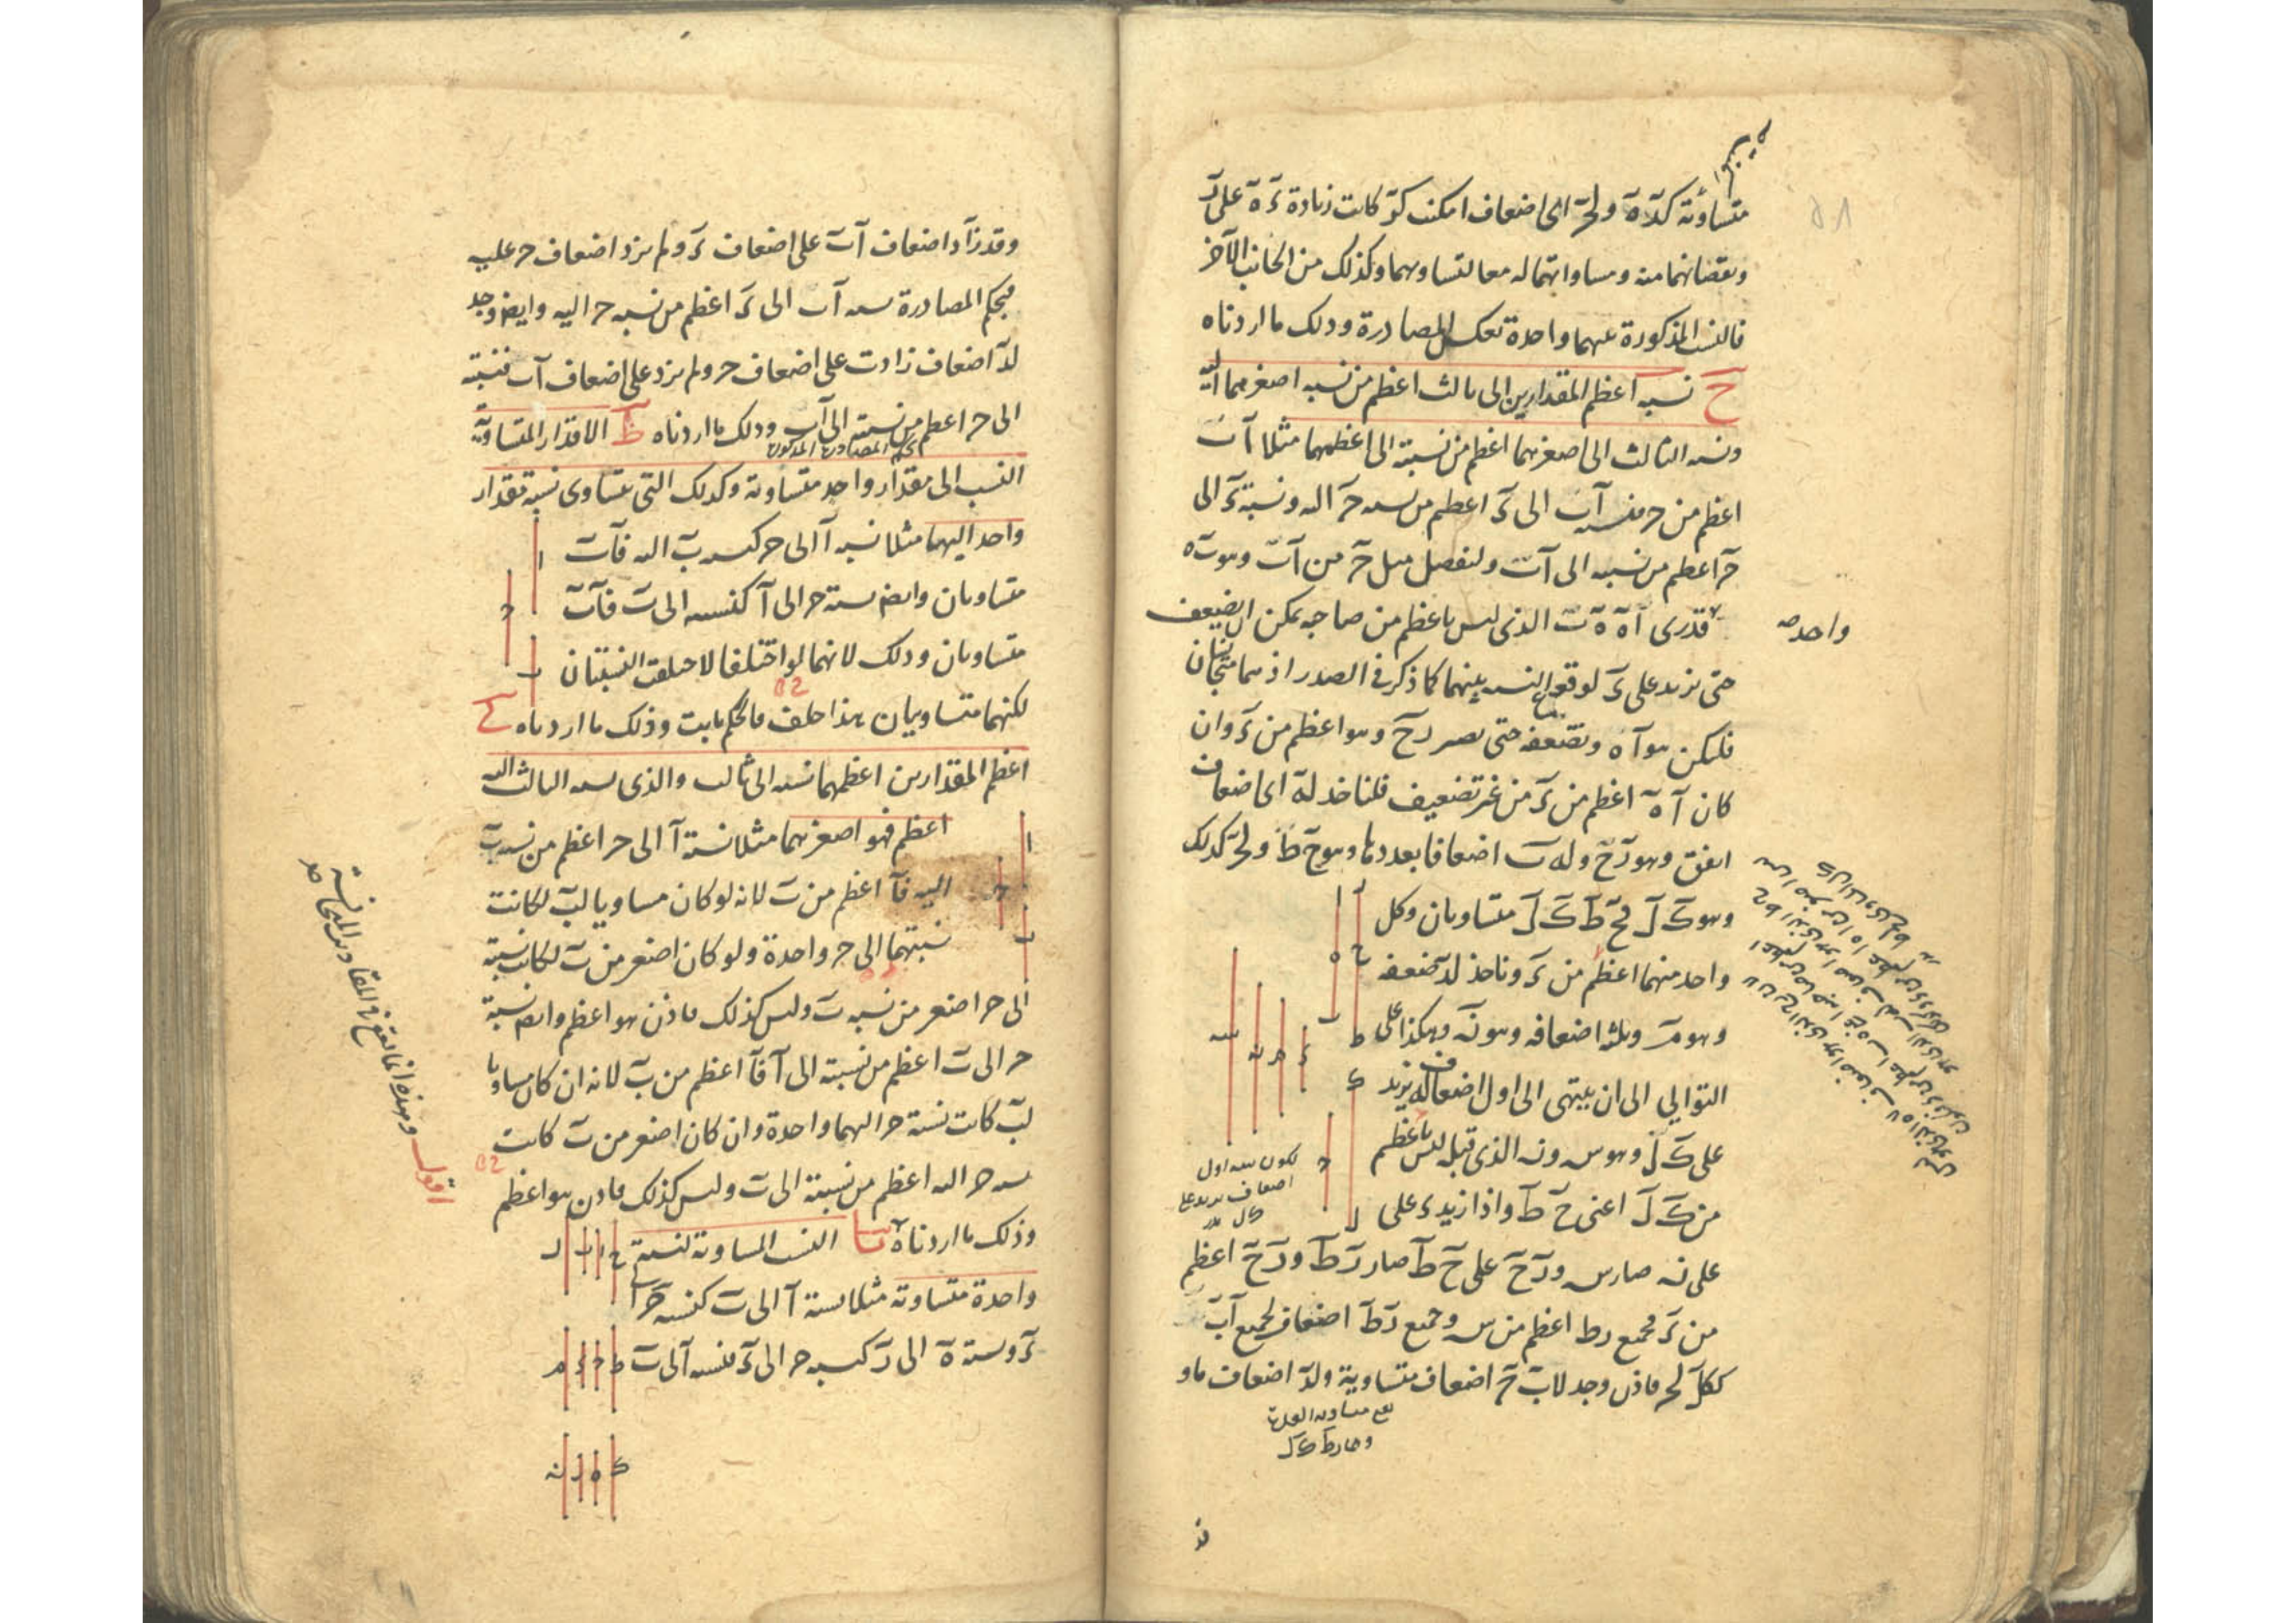 متساوية كـ د ه ولحـ اى اضعاف امكنت كو كانت زيادة ء ه على ر
ونقصانهما منه ومساواتهما له معا لتساويهما وكذلك من الجانب الآخر
فالنسب المذكورة عنهما واحدة بعكس المصادرة وذلك ما اردناه
ح نسبة اعظم المقدارين الى ثالث اعظم من نسبة اصغرهما اليه
ونسبة الثالث الى اصغرهما اعظم من نسبته الى اعظمهما مثلا اب
اعظم من حـ فنسبة اب الى ء اعظم من نسبة حـ اليه ونسبة ء الى
حـ اعظم من نسبته الى اب ولنفصل مثل حـ من اب وهو ب ه
فقدرى ا ه ه ب الذى ليس باعظم من صاحبه يمكن ان يضعف
واحد
حتى يزيد على ء لوقوع النسبة بينهما كما ذكر فى الصدر اذ هما متجانسان
فليكن هو ا ه ونضعفه حتى يصير ر ح وهو اعظم من ء وان
كان ا ه اعظم من ء من غير تضعيف فلناخذ له اى اضعاف
اتفق وهو ر ح وله ب اضعافا بعددها وهو ح ط ولحـ كذلك
وهو ك ل فح ط ك ل متساويان وكل
واحد منهما اعظم من ء وناخذ لد ضعفه
وهو م وثلثة اضعافه وهو ن وهكذا على
التوالي الى ان ينتهى الى اول اضعاف له يزيد
على ك ل وهو س ون الذى قبله ليس باعظم
من ك ل اعنى ح ط واذا زيد ء على
على ن صار س ور ح على ح ط صار ر ط ور ح اعظم
من ء فجميع ر ط اعظم من س وجميع ر ط اضعاف لجميع اب
ككل لحـ فاذن وجد لاب حـ اضعاف متساوية ولد اضعاف ما و
لكون س اول
اضعاف يزيد على
ك ل
وقد زاد اضعاف اب على اضعاف ء ولم يزد اضعاف حـ عليه
فبحكم المصادرة نسبة اب الى ء اعظم من نسبة حـ اليه وايضا وجد
لد اضعاف زادت على اضعاف حـ ولم يزد على اضعاف اب فنسبته
الى حـ اعظم من نسبته الى اب وذلك ما اردناه ط الاقدار المتساوية
بحكم المصادرة المذكورة
النسب الى مقدار واحد متساوية وكذلك التى تتساوى نسبة مقدار
واحد اليهما مثلا نسبة ا الى حـ كنسبة ب اليه فا ب
متساويان وايضا نسبة حـ الى ا كنسبته الى ب فا ب
متساويان وذلك لانهما لو اختلفا لاختلفت النسبتان
لكنهما متساويتان هذا خلف فالحكم ثابت وذلك ما اردناه ى
اعظم المقدارين اعظمهما نسبة الى ثالث والذى نسبة الثالث اليه
اعظم فهو اصغرهما مثلا نسبة ا الى حـ اعظم من نسبة ب
اليه فا اعظم من ب لانه لو كان مساويا لب لكانت
نسبتهما الى حـ واحدة ولو كان اصغر من ب لكانت نسبته
الى حـ اصغر من نسبة ب وليس كذلك فاذن هو اعظم وايضا نسبة
حـ الى ب اعظم من نسبته الى ا فا اعظم من ب لانه ان كان مساويا
لب كانت نسبة حـ اليهما واحدة وان كان اصغر من ب كانت
نسبة حـ اليه اعظم من نسبته الى ب وليس كذلك فاذن هو اعظم
وذلك ما اردناه يا النسب المساوية لنسبة
واحدة متساوية مثلا نسبة ا الى ب كنسبة حـ الى
ء ونسبة ه الى ر كنسبة حـ الى ء فنسبة ا الى ب
اقول وهذه انما تقع فى المقادير المتجانسة